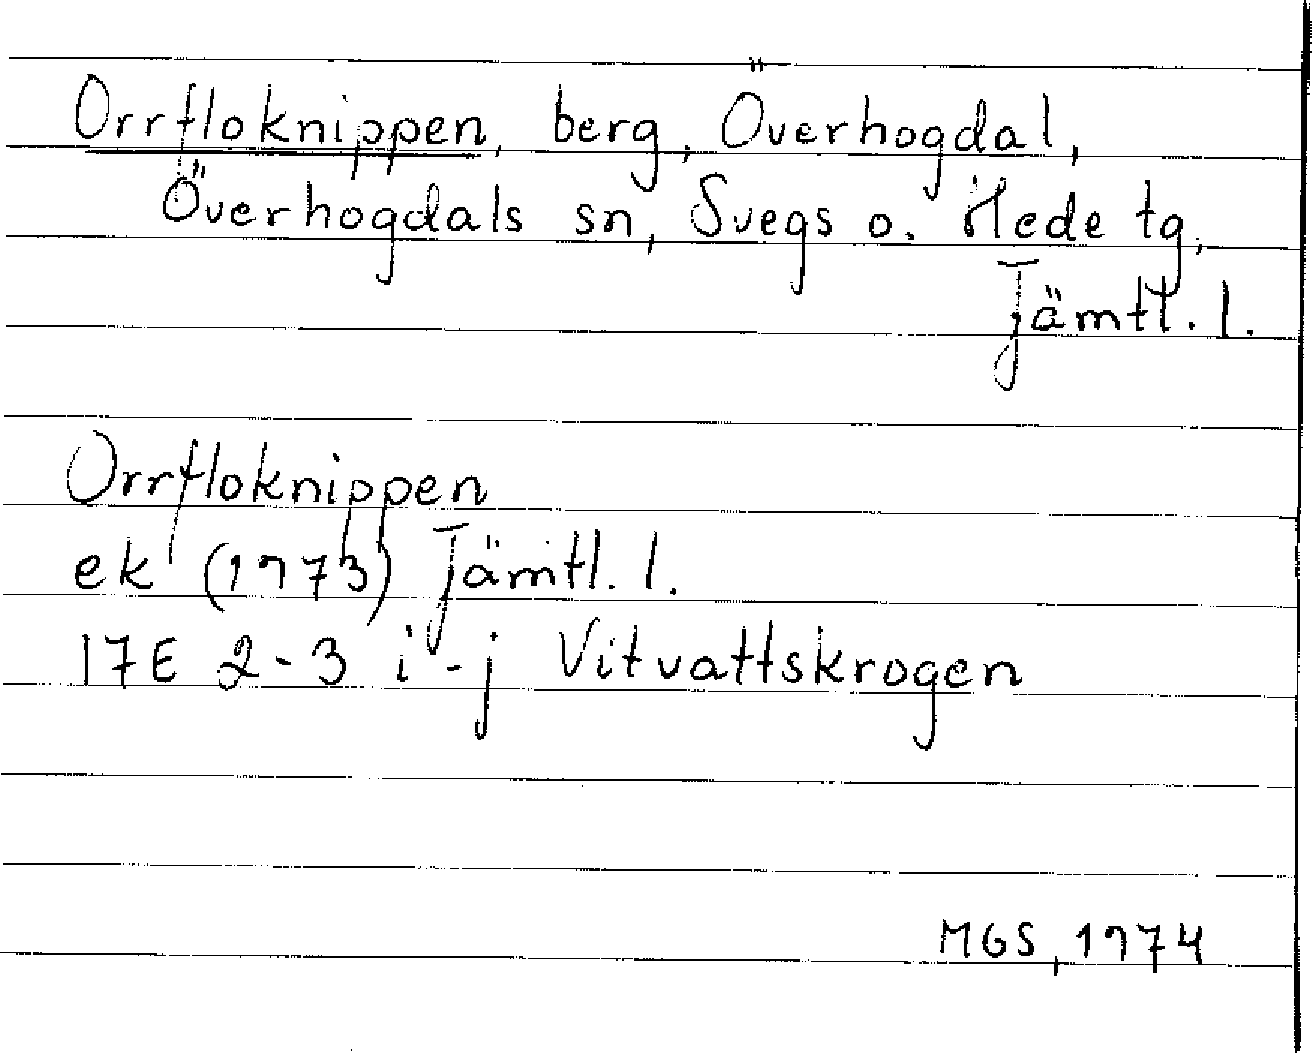 Orrfloknippen, berg, Överhogdal,
Överhogdals sn, Svegs o. Hede tg,
Jämtl. l.
Orrfloknippen
ek (1973) Jämtl. l.
17E 2-3 i-j Vitvattskrogen
MGS, 1974